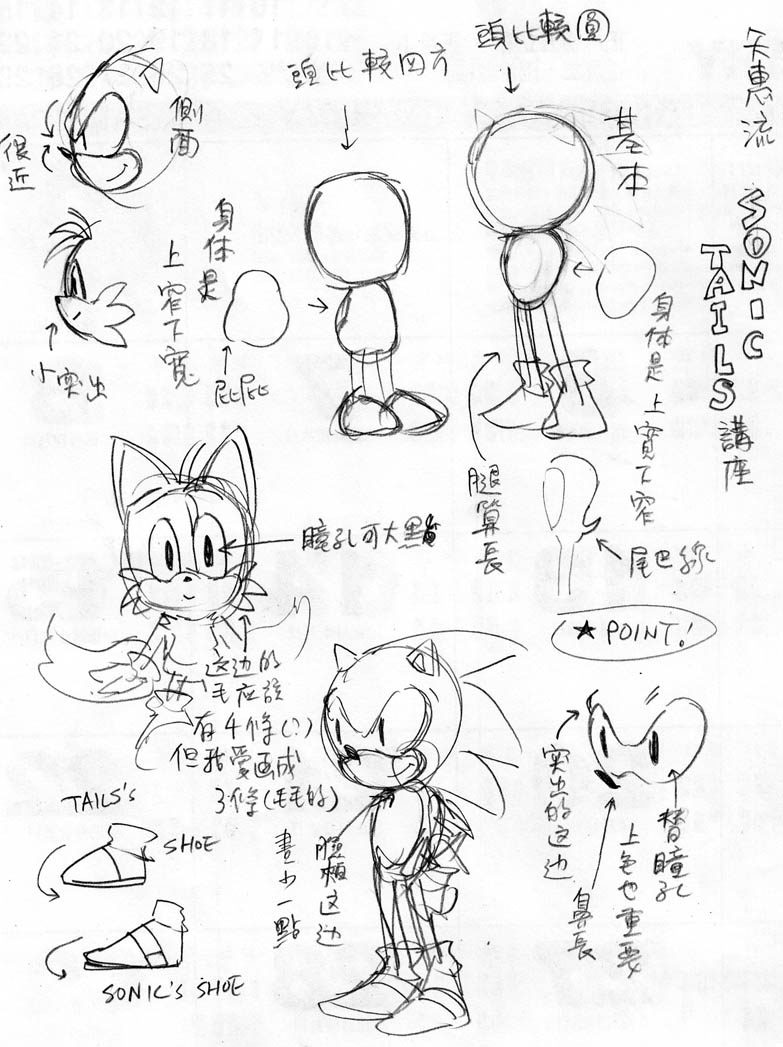 矢惠流 SONIC TAILS 講座
頭比較圓
基本
身体是上寬下窄
腿算長
尾巴線
★ POINT!
頭比較四方
身体是
上窄下寬
屁屁
側面
很近
小突出
瞳孔可大
這边的
毛应該
有4條(?)
但我愛画成
3條(毛毛的)
臉頰這边
畫小一點
突出的這边
瞳孔
上色也重要
鼻長
TAILS'S
SHOE
SONIC'S SHOE